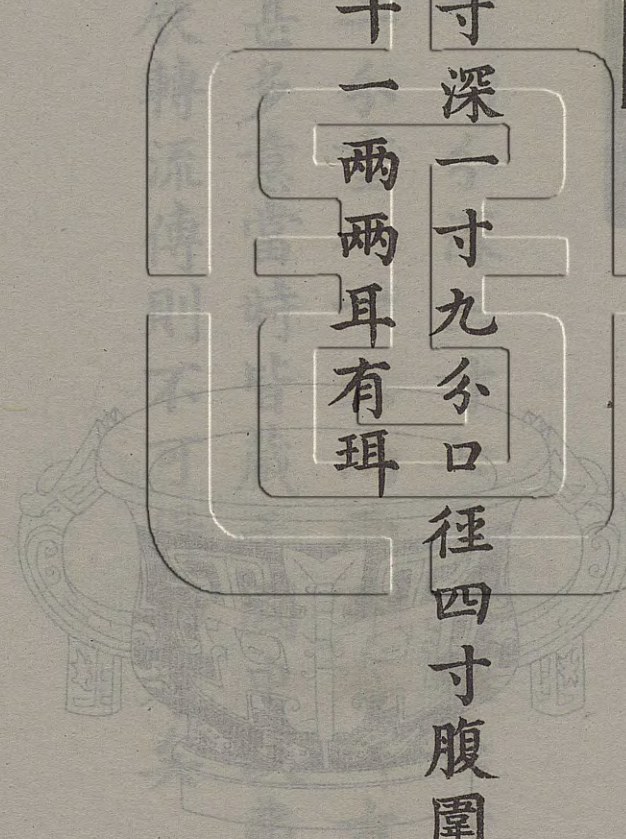 寸深一寸九分口徑四寸腹圍
十一兩兩耳有珥